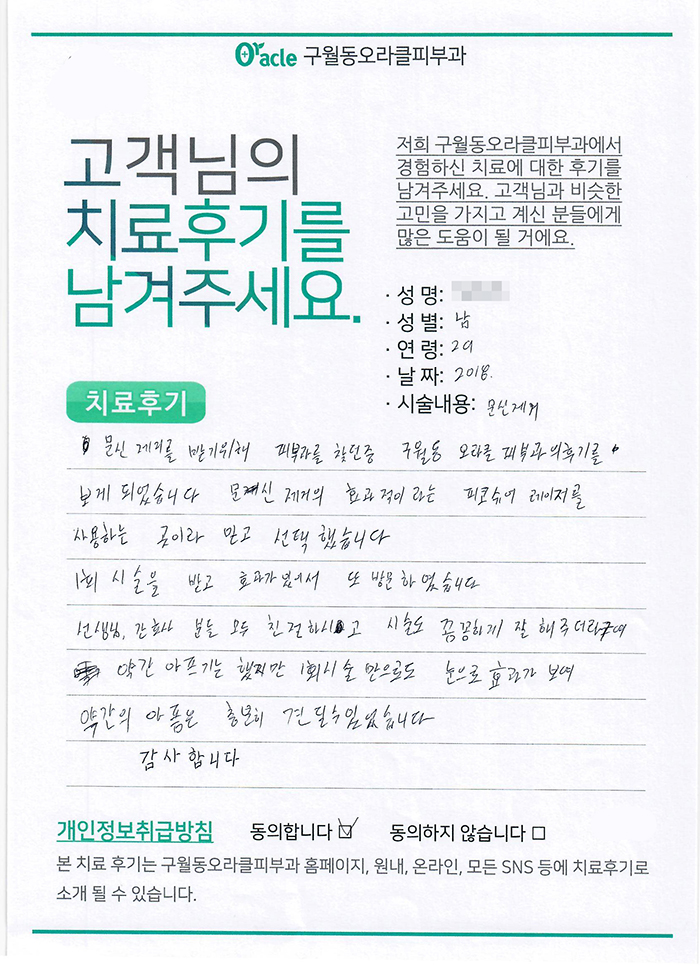 Oracle 구월동오라클피부과
고객님의
치료후기를
남겨주세요.
저희 구월동오라클피부과에서
경험하신 치료에 대한 후기를
남겨주세요. 고객님과 비슷한
고민을 가지고 계신 분들에게
많은 도움이 될 거에요.
· 성 명:
· 성 별: 남
· 연 령: 29
· 날 짜: 2018.
· 시술내용: 문신제거
치료후기
문신 제거를 받기위해 피부과를 찾던중 구월동 오라클 피부과의후기를
보게 되었습니다 문신 제거의 효과적이라는 피코슈어 레이저를
사용하는 곳이라 믿고 선택했습니다
1회 시술을 받고 효과가 있어서 또 방문하였습니다
선생님, 간호사 분들 모두 친절하시고 시술도 꼼꼼하게 잘 해주더라구여
약간 아프기는 했지만 1회시술 만으로도 눈으로 효과가 보여
약간의 아픔은 충분히 견딜수있었습니다
감사합니다
개인정보취급방침 동의합니다 ☑ 동의하지 않습니다 □
본 치료 후기는 구월동오라클피부과 홈페이지, 원내, 온라인, 모든 SNS 등에 치료후기로
소개 될 수 있습니다.